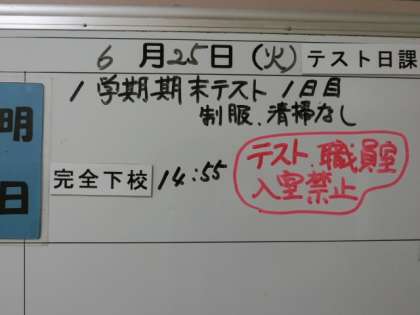 6月25日(火)テスト日課
1学期期末テスト 1日目
制服、清掃なし
明日
完全下校 14:55
テスト、職員室
入室禁止